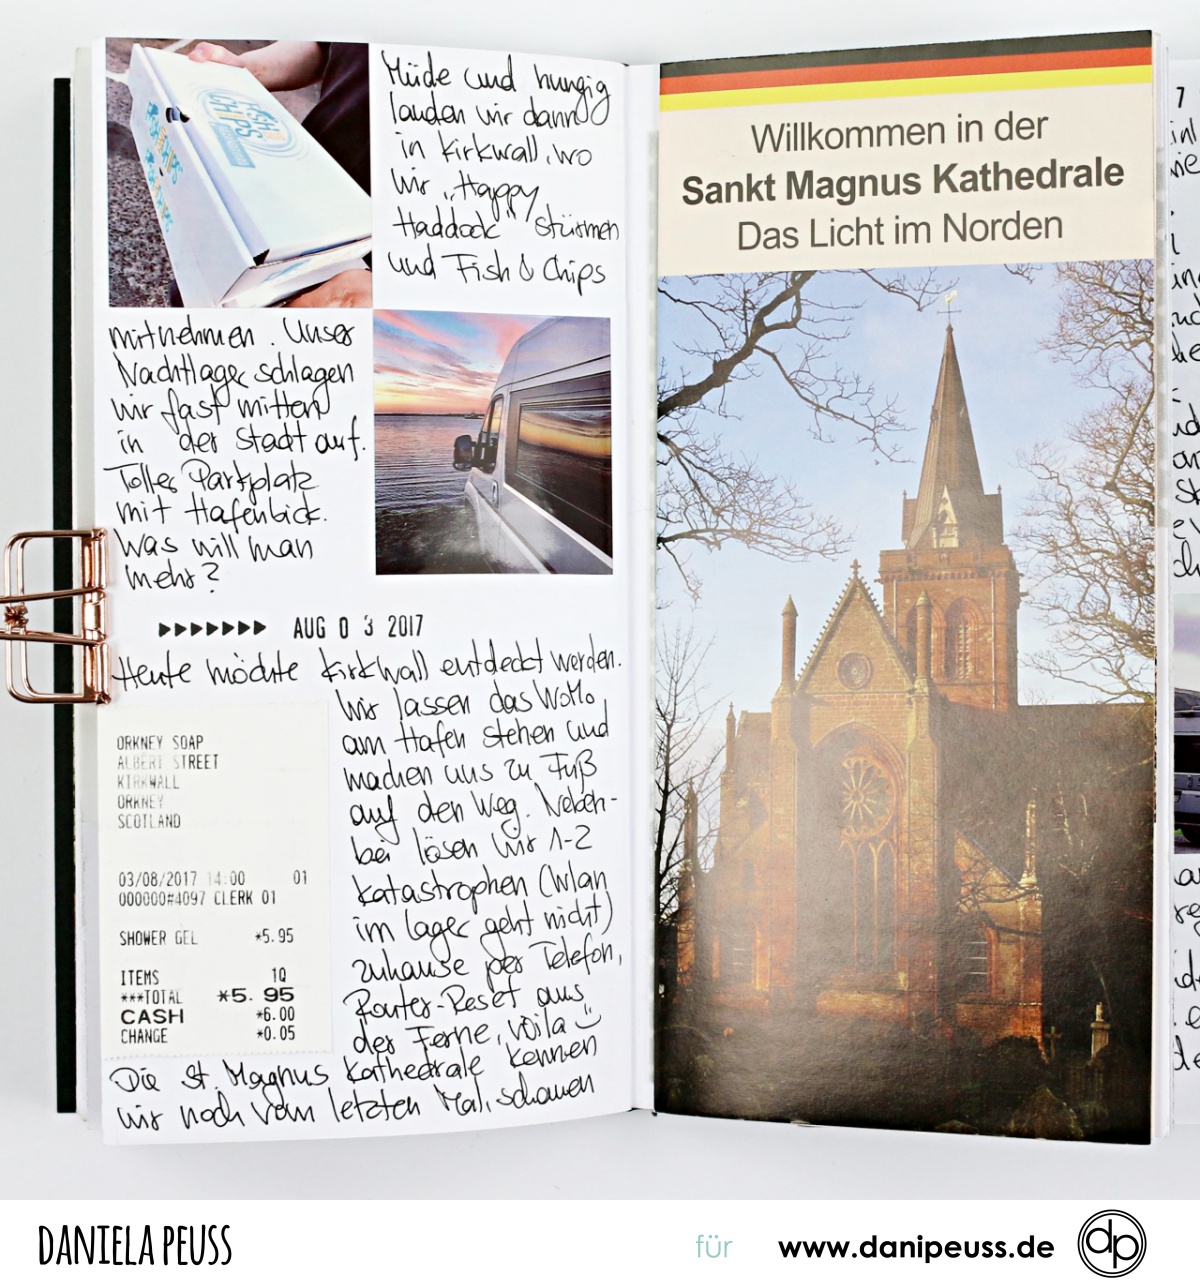 FISH
CHIPS
Müde und hungrig
landen wir dann
in Kirkwall, wo
wir „Happy
Haddock“ stürmen
und Fish & Chips
mitnehmen. Unser
Nachtlager schlagen
wir fast mitten
in der Stadt auf.
Toller Parkplatz
mit Hafenblick.
Was will man
mehr?
AUG 03 2017
Heute möchte Kirkwall entdeckt werden.
Wir lassen das WoMo
am Hafen stehen und
machen uns zu Fuß
auf den Weg. Neben-
bei lösen wir 1-2
Katastrophen (Wlan
im Lager geht nicht)
zuhause per Telefon,
Router-Reset aus
der Ferne, voila
Die St. Magnus Kathedrale kennen
wir noch vom letzten Mal, schauen
ORKNEY SOAP
ALBERT STREET
KIRKWALL
ORKNEY
SCOTLAND
03/08/2017 14:00 01
000000#4097 CLERK 01
SHOWER GEL *5.95
ITEMS 1Q
***TOTAL *5.95
CASH *6.00
CHANGE *0.05
Willkommen in der
Sankt Magnus Kathedrale
Das Licht im Norden
7
DANIELA PEUSS
für www.danipeuss.de dp